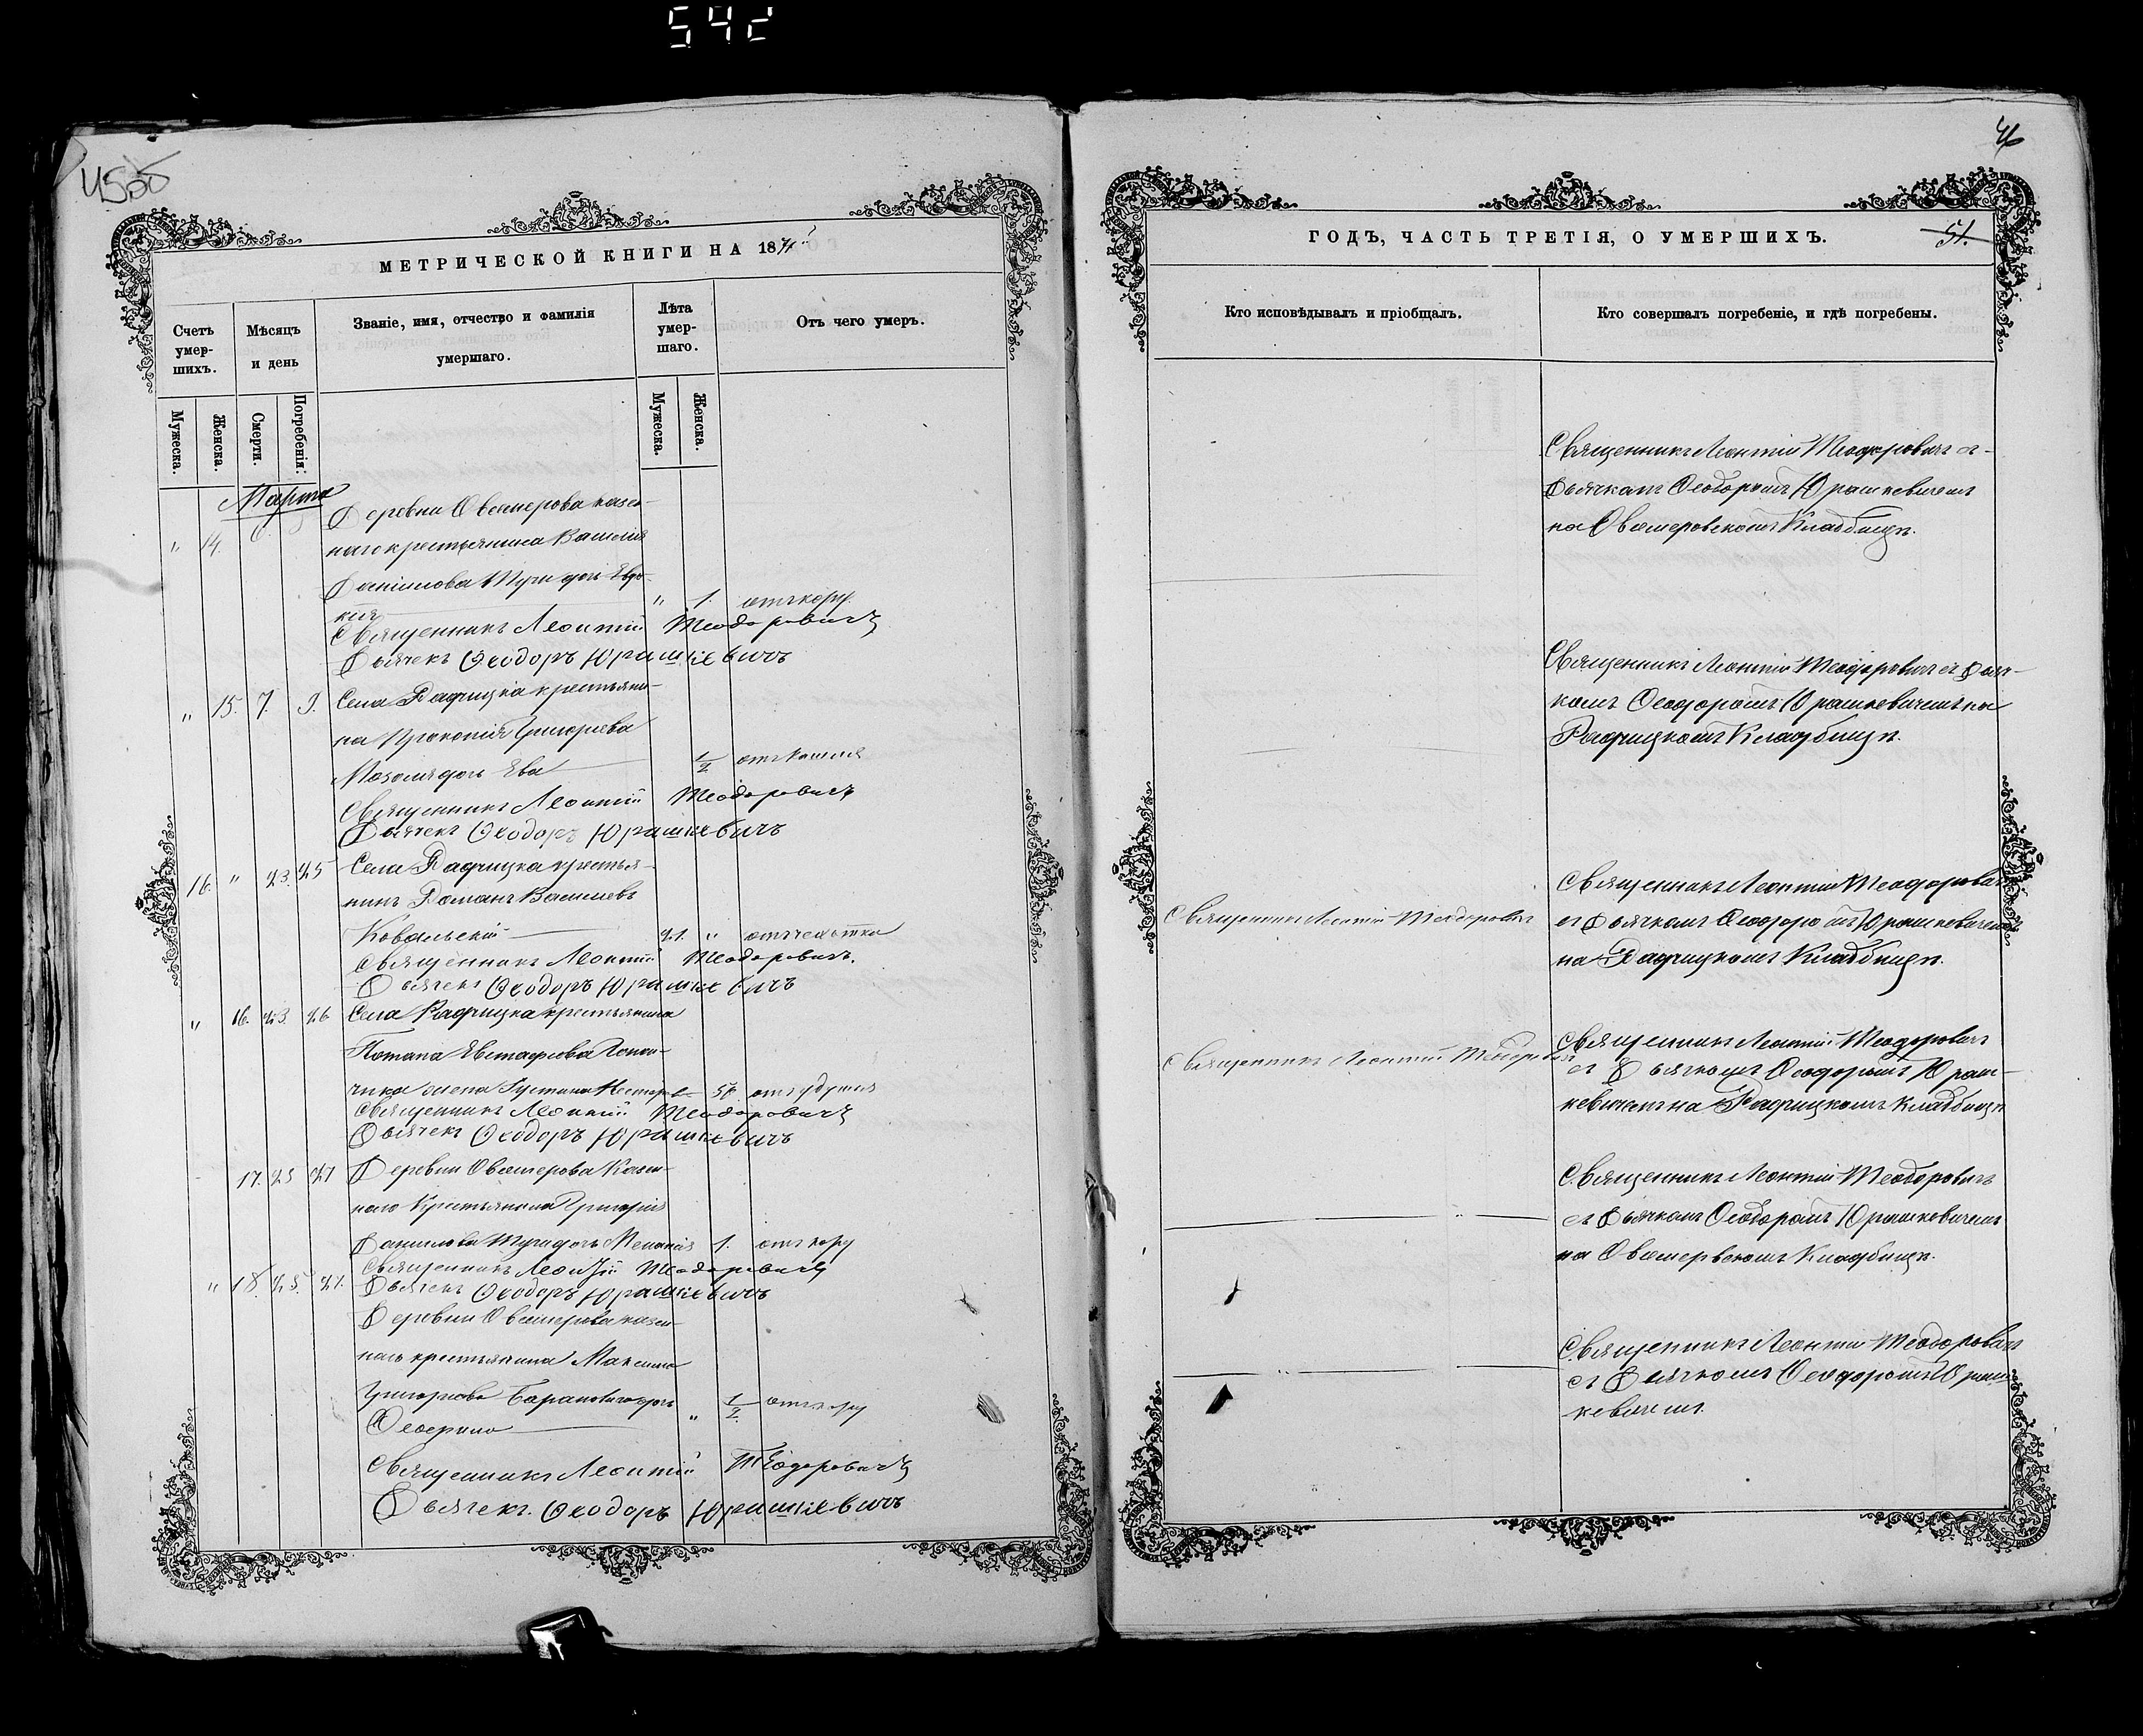 542
46
МЕТРИЧЕСКОЙ КНИГИ НА 187
Счетъ умер-шихъ.
Мѣсяцъ и день
Званіе, имя, отчество и фамилія умершаго.
Лѣта умер-шаго.
Отъ чего умеръ.
Мужеска.
Женска.
Смерти.
Погребенія:
Мужеска.
Женска.
Марта
" 14.
Деревни Овсемерова казен-
наго крестьянина Василія
дочь Евдо-
кія " 1. отъ кору.
Священникъ Леонтій Теодоровичъ
Дьячекъ Ѳеодоръ Юрашкевичъ
" 15. 7. 9. Села Радчицка крестьяни-
на Прокопія Григорьева
дочь Ева 1/2 отъ кашля
Священникъ Леонтій Теодоровичъ
Дьячекъ Ѳеодоръ Юрашкевичъ
16. " 23. 25 Села Радчицка крестья-
нинъ Романъ Васильевъ
Ковальскій 21. " отъ чахотки
Священникъ Леонтій Теодоровичъ.
Дьячекъ Ѳеодоръ Юрашкевичъ
" 16. 23. 26 Села Радчицка крестьянина
Потапа Евстафіева
жена Густина Нестеров отъ удушья
Священникъ Леонтій Теодоровичъ
Дьячекъ Ѳеодоръ Юрашкевичъ
17. 25 27 Деревни Овсемерова Казен-
наго Крестьянина Григорія
Данилова дочь Меланія 1. отъ кору
Священникъ Леонтій Теодоровичъ
" 18. 25. 27. Дьячекъ Ѳеодоръ Юрашкевичъ
Деревни Овсемерова казен-
наго крестьянина Максима
Григорьева Барановича дочь
" 1/2 отъ кору
Священникъ Леонтій Теодоровичъ
Дьячекъ. Ѳеодоръ Юрашкевичъ
ГОДЪ, ЧАСТЬ ТРЕТІЯ, О УМЕРШИХЪ.
51.
Кто исповѣдывалъ и пріобщалъ.
Кто совершалъ погребеніе, и гдѣ погребены.
Священникъ Леонтій Теодоровичъ съ
Дьячкомъ Ѳеодоромъ Юрашкевичемъ
на Овсемеровскомъ Кладбищѣ.
Священникъ Леонтій Теодоровичъ съ Дьяч-
комъ Ѳеодоромъ Юрашкевичемъ на
Радчицкомъ Кладбищѣ.
Священникъ Леонтій Теодоровичъ
Священникъ Леонтій Теодоровичъ
съ Дьячкомъ Ѳеодоромъ Юрашкевичемъ
на Радчицкомъ Кладбищѣ.
Священникъ Леонтій Теодоровичъ
Священникъ Леонтій Теодоровичъ
съ Дьячкомъ Ѳеодоромъ Юраш-
кевичемъ на Радчицкомъ кладбищѣ
Священникъ Леонтій Теодоровичъ
съ Дьячкомъ Ѳеодоромъ Юрашкевичемъ
на Овсемеровскомъ Кладбищѣ.
Священникъ Леонтій Теодоровичъ
съ Дьячкомъ Ѳеодоромъ Юраш-
кевичемъ.